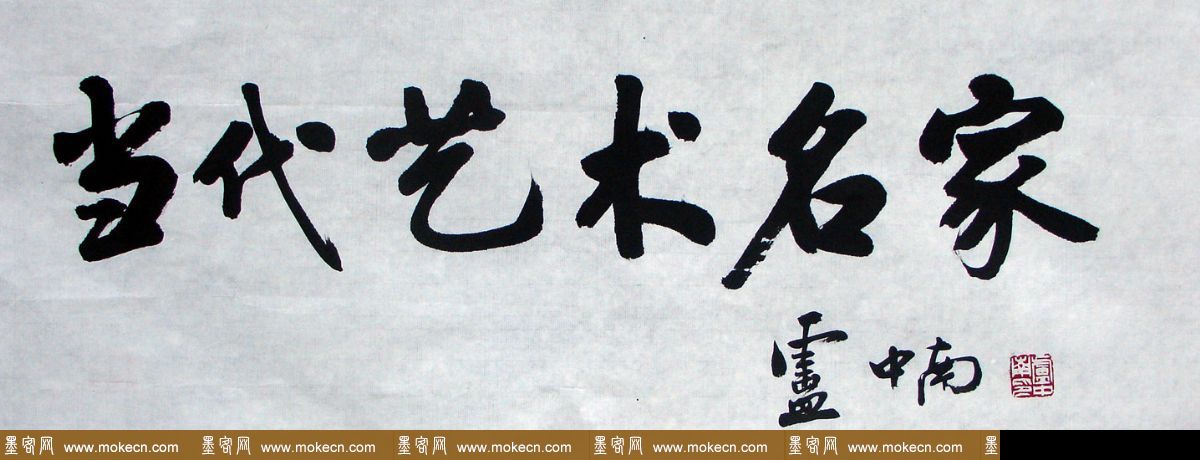 当代艺术名家
盧中南
盧中南印
墨客网 www.mokecn.com 墨客网 www.mokecn.com 墨客网 www.mokecn.com 墨客网 www.mokecn.com 墨客网 www.mokecn.com 墨客网 www.mokecn.com 墨客网 www.mokecn.com 墨